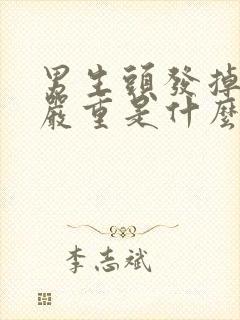 男生頭發掉
嚴重是什麼
李志斌